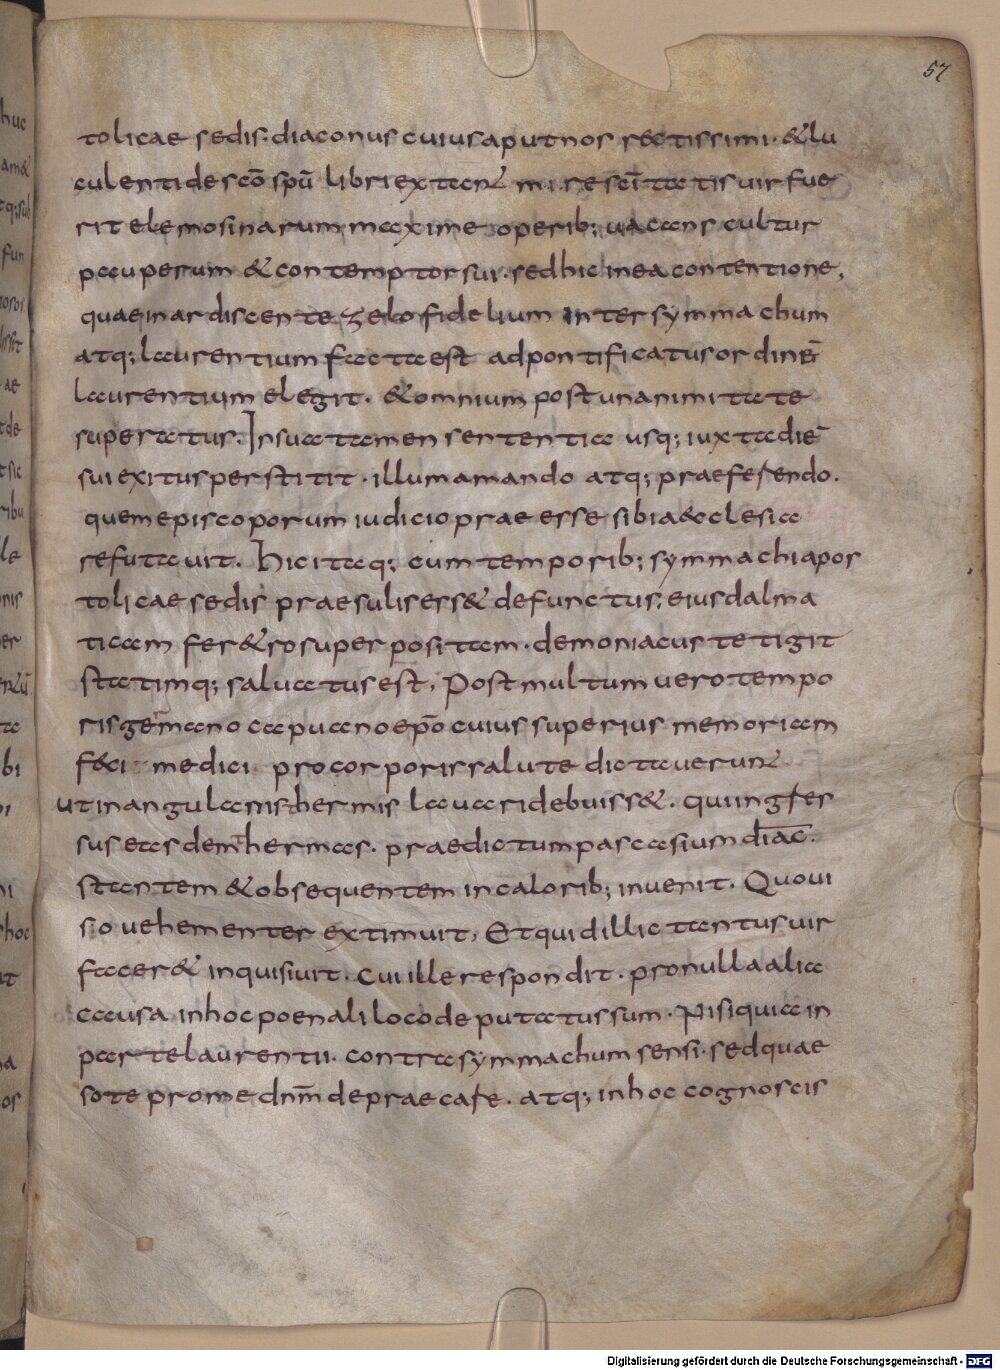 57
tolicae sedis. diaconus cuius aput nos rectissimi. & lu
culenti de scō spū libri extant mirę scītatis vir fue
rit elemosinarum maxime operib; vacans cultur
pauperum & contemptor sui. sed hic in ea contentione,
quae inardiscente zelo fidelium inter symmachum
atq; laurentium facta est ad pontificatus ordinē
laurentium elegit. & omnium post unanimitate
superatur. In sua tamen sententia usq; iuxta diē
sui exitus perstitit. illum amando atq; praeferendo.
quem episcoporum iudicio praeesse sibi aecclesia
refutavit. Hic itaq; cum temporib; symmachi apos
tolicae sedis praesulis ess& defunctus, eius dalma
ticam fer&ro superpositam. demoniacus tetigit
statimq; salvatus est, Post multum vero tempo
ris germano capuano epo cuius superius memoriam
feci medici pro corporis salute dictaverunt
ut in angulanis hermis lavari debuiss&. qui ingres
sus easdem hermas. praedictum pascasium diac.
stantem & obsequentem in calorib; invenit. Quo vi
so vehementer extimuit, Et quid illic tantus vir
facer& inquisivit. Cui ille respondit. pro nulla alia
causa in hoc poenali loco deputatus sum. Nisi quia in
parte laurentii. contra symmachum sensi. sed quae
so te pro me dnm deprecare. atq; in hoc cognoscis
Digitalisierung gefördert durch die Deutsche Forschungsgemeinschaft - DFG